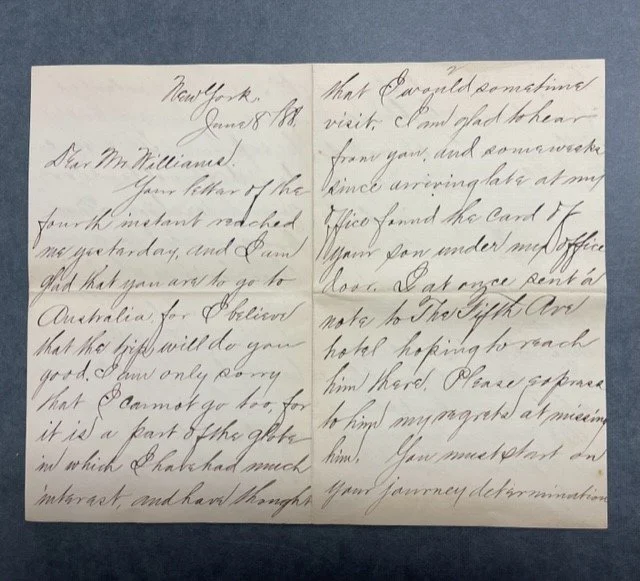 New York.
June 8 / 88.
Dear Mr Williams!
Your letter of the
fourth instant reached
me yesterday, and I am
glad that you are to go to
Australia, for I believe
that the trip will do you
good. I am only sorry
that I cannot go too, for
it is a part of the globe
in which I have had much
interest, and have thought
that I would sometime
visit. I am glad to hear
from you, and some weeks
since arriving late at my
office found the card of
your son under my office
door. I at once sent a
note to The Fifth Ave
hotel hoping to reach
him there. Please express
to him my regrets at missing
him. You must start on
your journey determination